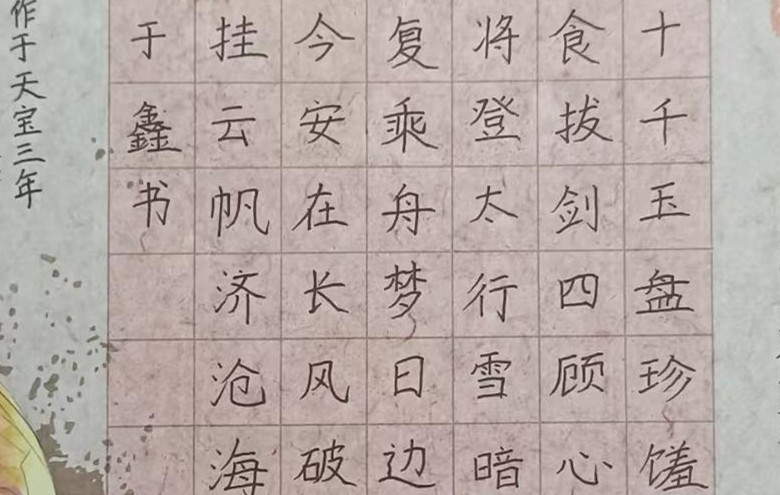 十千玉盘珍馐
食拔剑四顾心
将登太行雪暗
复乘舟梦日边
今安在长风破
挂云帆济沧海
于鑫书
作于天宝三年